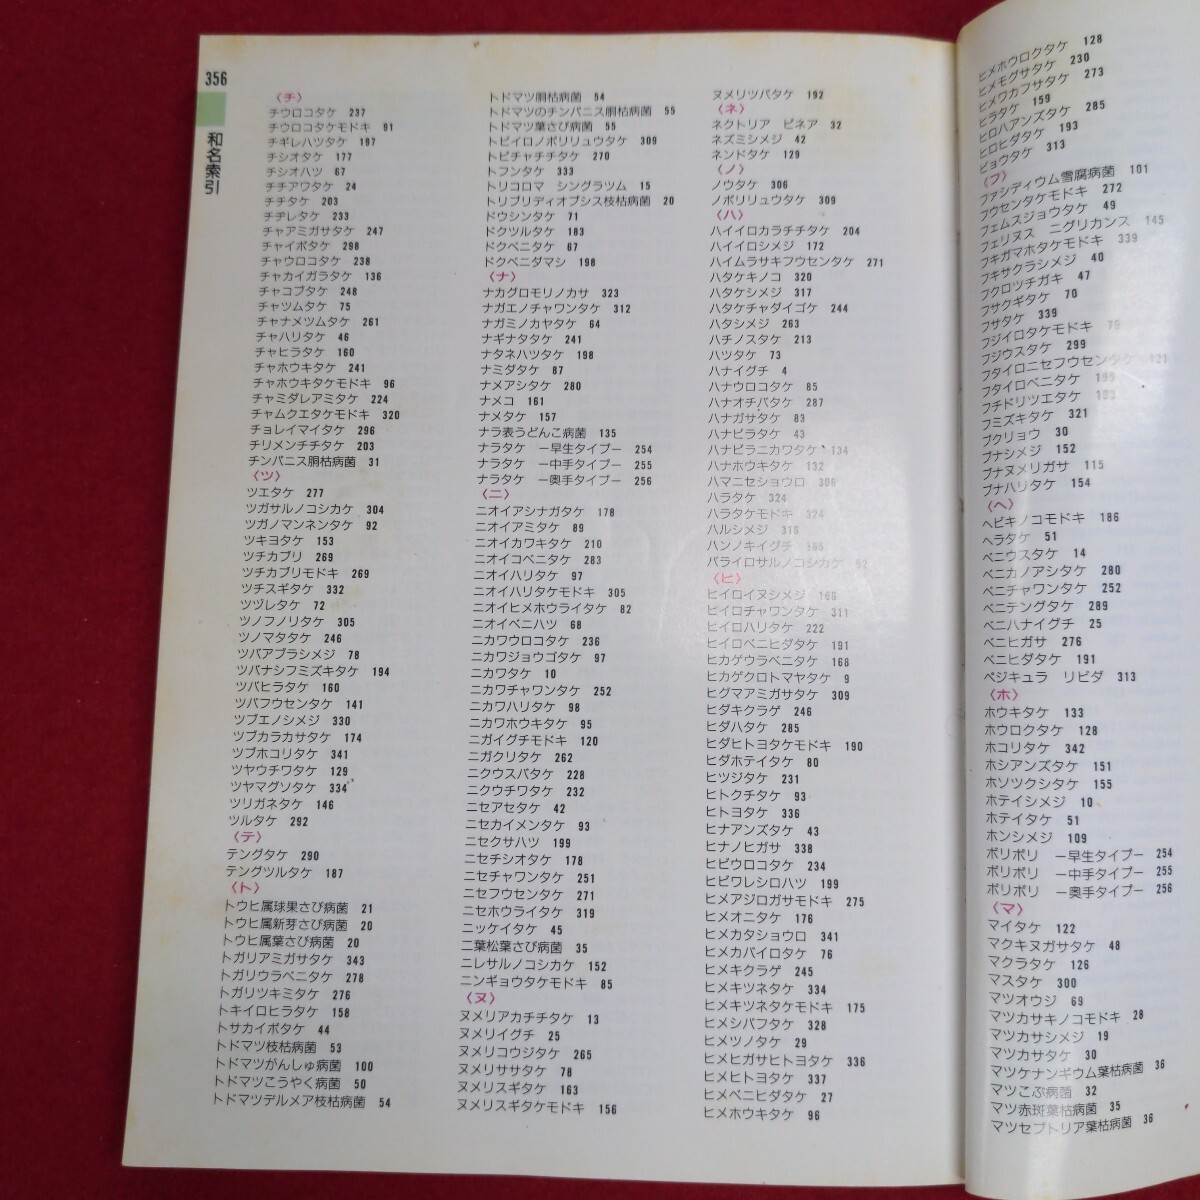 356
和名索引
〈チ〉
チウロコタケ 237
チウロコタケモドキ 91
チギレハツタケ 197
チシオタケ 177
チシオハツ 67
チチアワタケ 24
チチタケ 203
チヂレタケ 233
チャアミガサタケ 247
チャイボタケ 298
チャウロコタケ 238
チャカイガラタケ 136
チャコブタケ 248
チャツムタケ 75
チャナメツムタケ 261
チャハリタケ 46
チャヒラタケ 160
チャホウキタケ 241
チャホウキタケモドキ 96
チャミダレアミタケ 224
チャムクエタケモドキ 320
チョレイマイタケ 296
チリメンチチタケ 203
チンパニス胴枯病菌 31
〈ツ〉
ツエタケ 277
ツガサルノコシカケ 304
ツガノマンネンタケ 92
ツキヨタケ 153
ツチカブリ 269
ツチカブリモドキ 269
ツチスギタケ 332
ツヅレタケ 72
ツノフノリタケ 305
ツノマタタケ 246
ツバアブラシメジ 78
ツバナシフミズキタケ 194
ツバヒラタケ 160
ツバフウセンタケ 141
ツブエノシメジ 330
ツブカラカサタケ 174
ツブホコリタケ 341
ツヤウチワタケ 129
ツヤマグソタケ 334
ツリガネタケ 146
ツルタケ 292
〈テ〉
テングタケ 290
テングツルタケ 187
〈ト〉
トウヒ属球果さび病菌 21
トウヒ属新芽さび病菌 20
トウヒ属葉さび病菌 20
トガリアミガサタケ 343
トガリウラベニタケ 278
トガリツキミタケ 276
トキイロヒラタケ 158
トサカイボタケ 44
トドマツ枝枯病菌 53
トドマツがんしゅ病菌 100
トドマツこうやく病菌 50
トドマツデルメア枝枯病菌 54
トドマツ胴枯病菌 54
トドマツのチンパニス胴枯病菌 55
トドマツ葉さび病菌 55
トビイロノボリリュウタケ 309
トビチャチチタケ 270
トフンタケ 333
トリコロマ シングラツム 15
トリブリディオプシス枝枯病菌 20
ドウシンタケ 71
ドクツルタケ 183
ドクベニタケ 67
ドクベニダマシ 198
〈ナ〉
ナカグロモリノカサ 323
ナガエノチャワンタケ 312
ナガミノカヤタケ 64
ナギナタタケ 241
ナタネハツタケ 198
ナミダタケ 87
ナメアシタケ 280
ナメコ 161
ナメタケ 157
ナラ表うどんこ病菌 135
ナラタケ ー早生タイプー 254
ナラタケ ー中手タイプー 255
ナラタケ ー奥手タイプー 256
〈ニ〉
ニオイアシナガタケ 178
ニオイアミタケ 89
ニオイカワキタケ 210
ニオイコベニタケ 283
ニオイハリタケ 97
ニオイハリタケモドキ 305
ニオイヒメホウライタケ 82
ニオイベニハツ 68
ニカワウロコタケ 236
ニカワジョウゴタケ 97
ニカワタケ 10
ニカワチャワンタケ 252
ニカワハリタケ 98
ニカワホウキタケ 95
ニガイグチモドキ 120
ニガクリタケ 262
ニクウスバタケ 228
ニクウチワタケ 232
ニセアセタケ 42
ニセカイメンタケ 93
ニセクサハツ 199
ニセチシオタケ 178
ニセチャワンタケ 251
ニセフウセンタケ 271
ニセホウライタケ 319
ニッケイタケ 45
二葉松葉さび病菌 35
ニレサルノコシカケ 152
ニンギョウタケモドキ 85
〈ヌ〉
ヌメリアカチチタケ 13
ヌメリイグチ 25
ヌメリコウジタケ 265
ヌメリササタケ 78
ヌメリスギタケ 163
ヌメリスギタケモドキ 156
ヌメリツバタケ 192
〈ネ〉
ネクトリア ピネア 32
ネズミシメジ 42
ネンドタケ 129
〈ノ〉
ノウタケ 306
ノボリリュウタケ 309
〈ハ〉
ハイイロカラチチタケ 204
ハイイロシメジ 172
ハイムラサキフウセンタケ 271
ハタケキノコ 320
ハタケシメジ 317
ハタケチャダイゴケ 244
ハタシメジ 263
ハチノスタケ 213
ハツタケ 73
ハナイグチ 4
ハナウロコタケ 85
ハナオチバタケ 287
ハナガサタケ 83
ハナビラタケ 43
ハナビラニカワタケ 134
ハナホウキタケ 132
ハマニセショウロ 306
ハラタケ 324
ハラタケモドキ 324
ハルシメジ 316
ハンノキイグチ
バライロサルノコシカケ 92
〈ヒ〉
ヒイロイヌシメジ 166
ヒイロチャワンタケ 311
ヒイロハリタケ 222
ヒイロベニヒダタケ 191
ヒカゲウラベニタケ 168
ヒカゲクロトマヤタケ 9
ヒグマアミガサタケ 309
ヒダキクラゲ 246
ヒダハタケ 285
ヒダヒトヨタケモドキ 190
ヒダホテイタケ 80
ヒツジタケ 231
ヒトクチタケ 93
ヒトヨタケ 336
ヒナアンズタケ 43
ヒナノヒガサ 338
ヒビウロコタケ 234
ヒビワレシロハツ 199
ヒメアジロガサモドキ 275
ヒメオニタケ 176
ヒメカタショウロ 341
ヒメカバイロタケ 76
ヒメキクラゲ 245
ヒメキツネタケ 334
ヒメキツネタケモドキ 175
ヒメシバフタケ 328
ヒメツノタケ 29
ヒメヒガサヒトヨタケ 336
ヒメヒトヨタケ 337
ヒメベニヒダタケ 27
ヒメホウキタケ 96
ヒメホウロクタケ 128
ヒメモグサタケ 230
ヒメワカフサタケ 273
ヒラタケ 159
ヒロハアンズタケ 285
ヒロヒダタケ 193
ビョウタケ 313
〈フ〉
ファシディウム雪腐病菌 101
フウセンタケモドキ 272
フェムスジョウタケ 49
フェリヌス ニグリカンス 145
フキガマホタケモドキ 339
フキサクラシメジ 40
フクロツチガキ 47
フサクギタケ 70
フサタケ 339
フジイロタケモドキ 79
フジウスタケ 299
フタイロニセフウセンタケ 121
フタイロベニタケ
フチドリツエタケ
フミズキタケ 321
ブクリョウ 30
ブナシメジ 152
ブナヌメリガサ 115
ブナハリタケ 154
〈ヘ〉
ヘビキノコモドキ 186
ヘラタケ 51
ベニウスタケ 14
ベニカノアシタケ 280
ベニチャワンタケ 252
ベニテングタケ 289
ベニハナイグチ 25
ベニヒガサ 276
ベニヒダタケ 191
ペジキュラ リビダ 313
〈ホ〉
ホウキタケ 133
ホウロクタケ 128
ホコリタケ 342
ホシアンズタケ 151
ホソツクシタケ 155
ホテイシメジ 10
ホテイタケ 51
ホンシメジ 109
ボリボリ ー早生タイプー 254
ボリボリ ー中手タイプー 255
ボリボリ ー奥手タイプー 256
〈マ〉
マイタケ 122
マクキヌガサタケ 48
マクラタケ 126
マスタケ 300
マツオウジ 69
マツカサキノコモドキ 28
マツカサシメジ 19
マツカサタケ 30
マツケナンギウム葉枯病菌 36
マツこぶ病菌 32
マツ赤斑葉枯病菌 35
マツセプトリア葉枯病菌 36